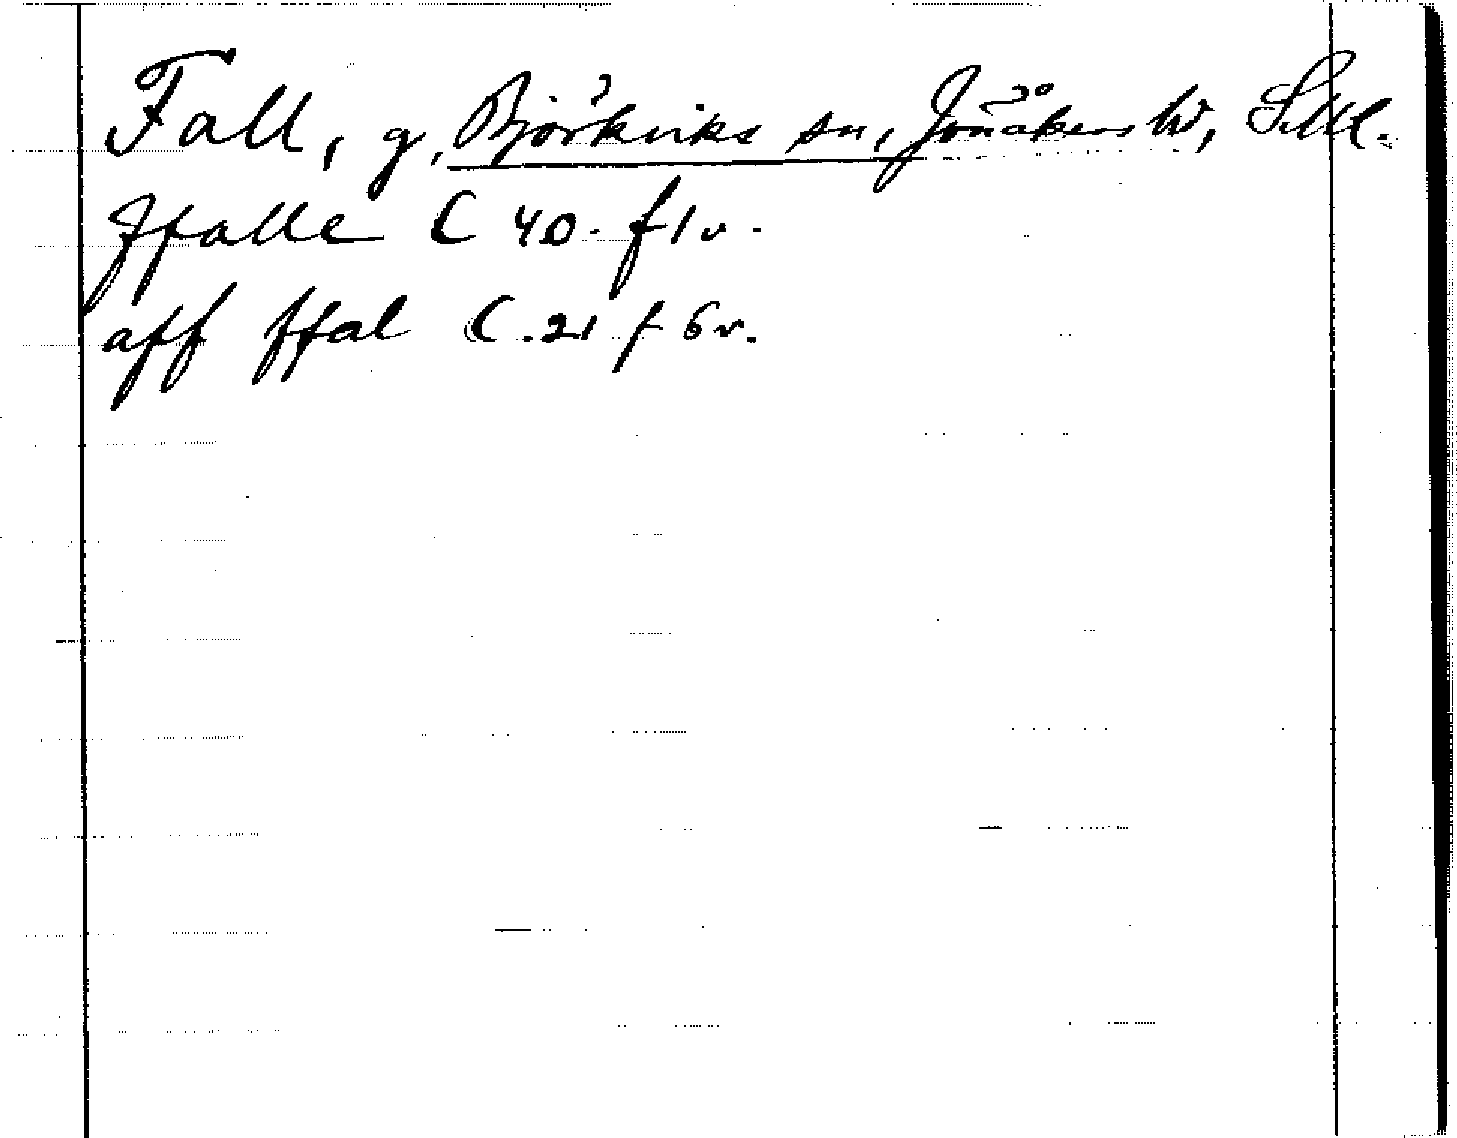 Fall, g, Björkviks sn, Jönåkers hd, Sdl.
ffalle C 40. f 1 v.
aff ffal C. 21 f 6 v.